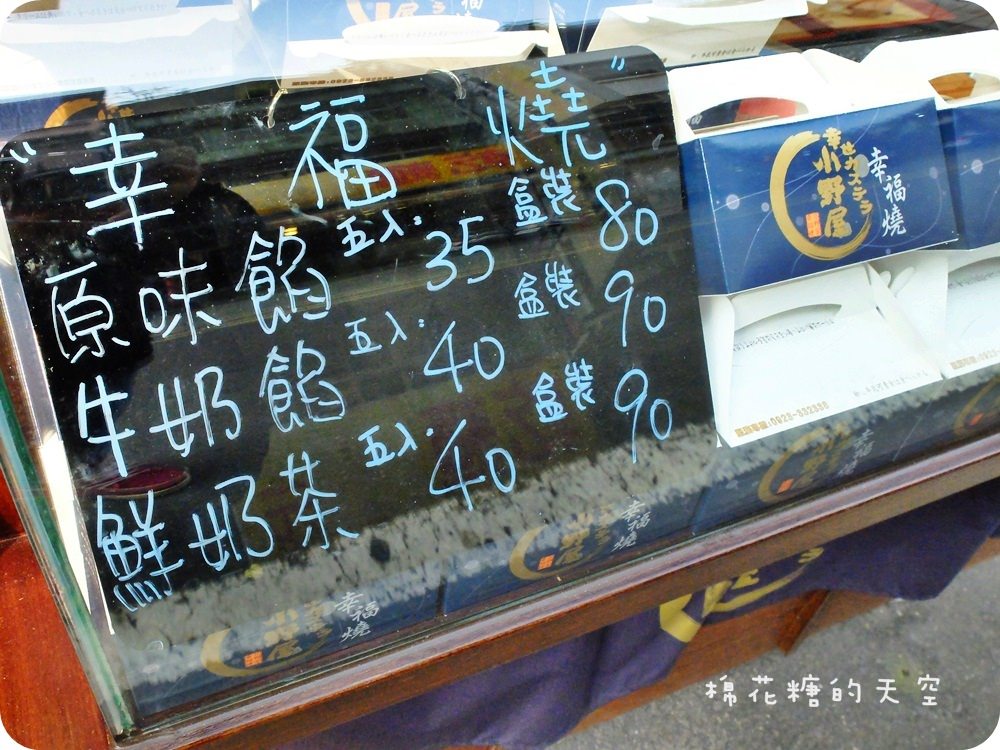 "幸福燒"
原味餡 五入: 35 盒裝 80
牛奶餡 五入: 40 盒裝 90
鮮奶茶 五入: 40 盒裝 90
幸せカステラ
小野屋
幸福燒
幸福燒
幸福燒
棉花糖的天空